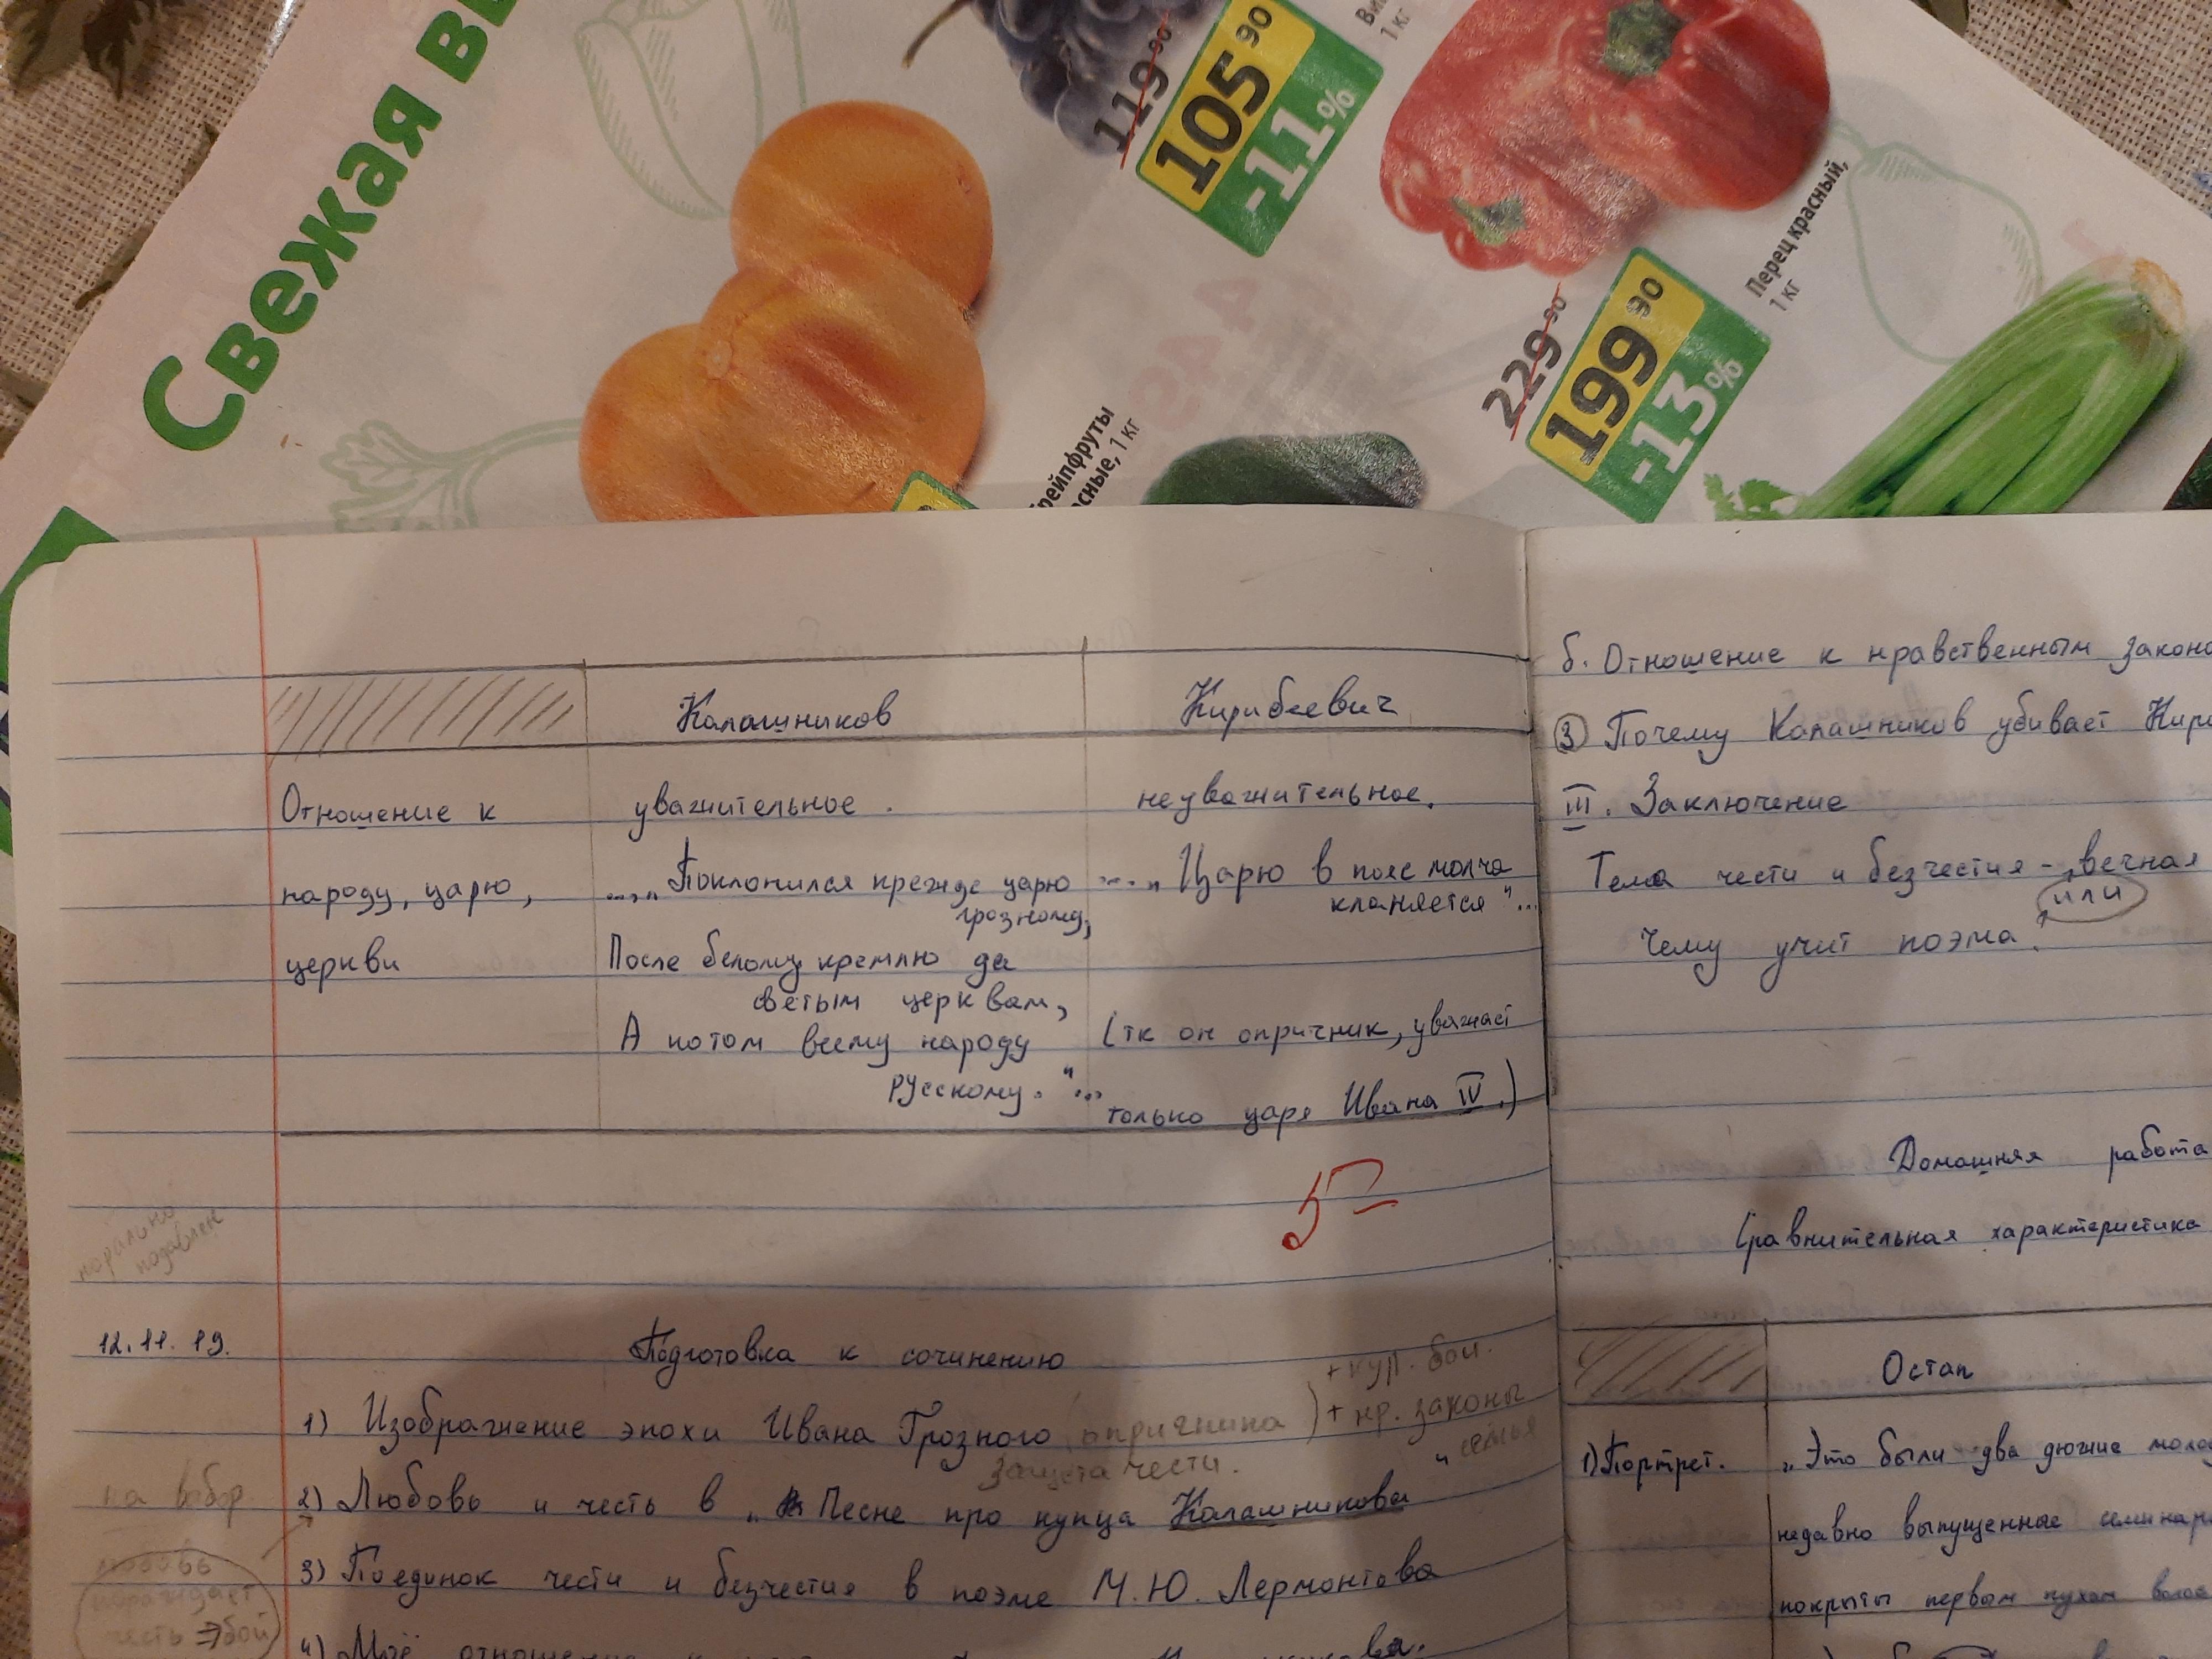 Свежая
119 90
105 90
-11%
1 кг
229 90
199 90
-13%
Перец красный,
1 кг
1 кг
Калашников
Кирибеевич
Отношение к
народу, царю,
церкви
уважительное.
...„Поклонился прежде царю
грозному,
После белому кремлю да
светым церквам,
А потом всему народу
русскому."...
неуважительное.
...„Царю в пояс молча
кланяется"...
(тк он опричник, уважает
только царя Ивана IV.)
5
12.11.19.
Подготовка к сочинению
1) Изображение эпохи Ивана Грозного (опричнина)
+ кул. бои.
+ нр. законы
семья
защета чести.
на выбор
2) Любовь и честь в „Песне про купца Калашникова
3) Поединок чести и безчестия в поэме М.Ю. Лермонтова
любовь
честь ⇒ бой
4) Моё отношение к
морально
подавлен
б. Отношение к нравственным
③ Почему Калашников убивает
III. Заключение
Тема чести и безчестия - вечная
или
Чему учит поэма?
Домашняя работа
Сравнительная характеристика
Остап
1) Портрет.
„Это были два дюжие
недавно выпущенные
покрыты первым пухом